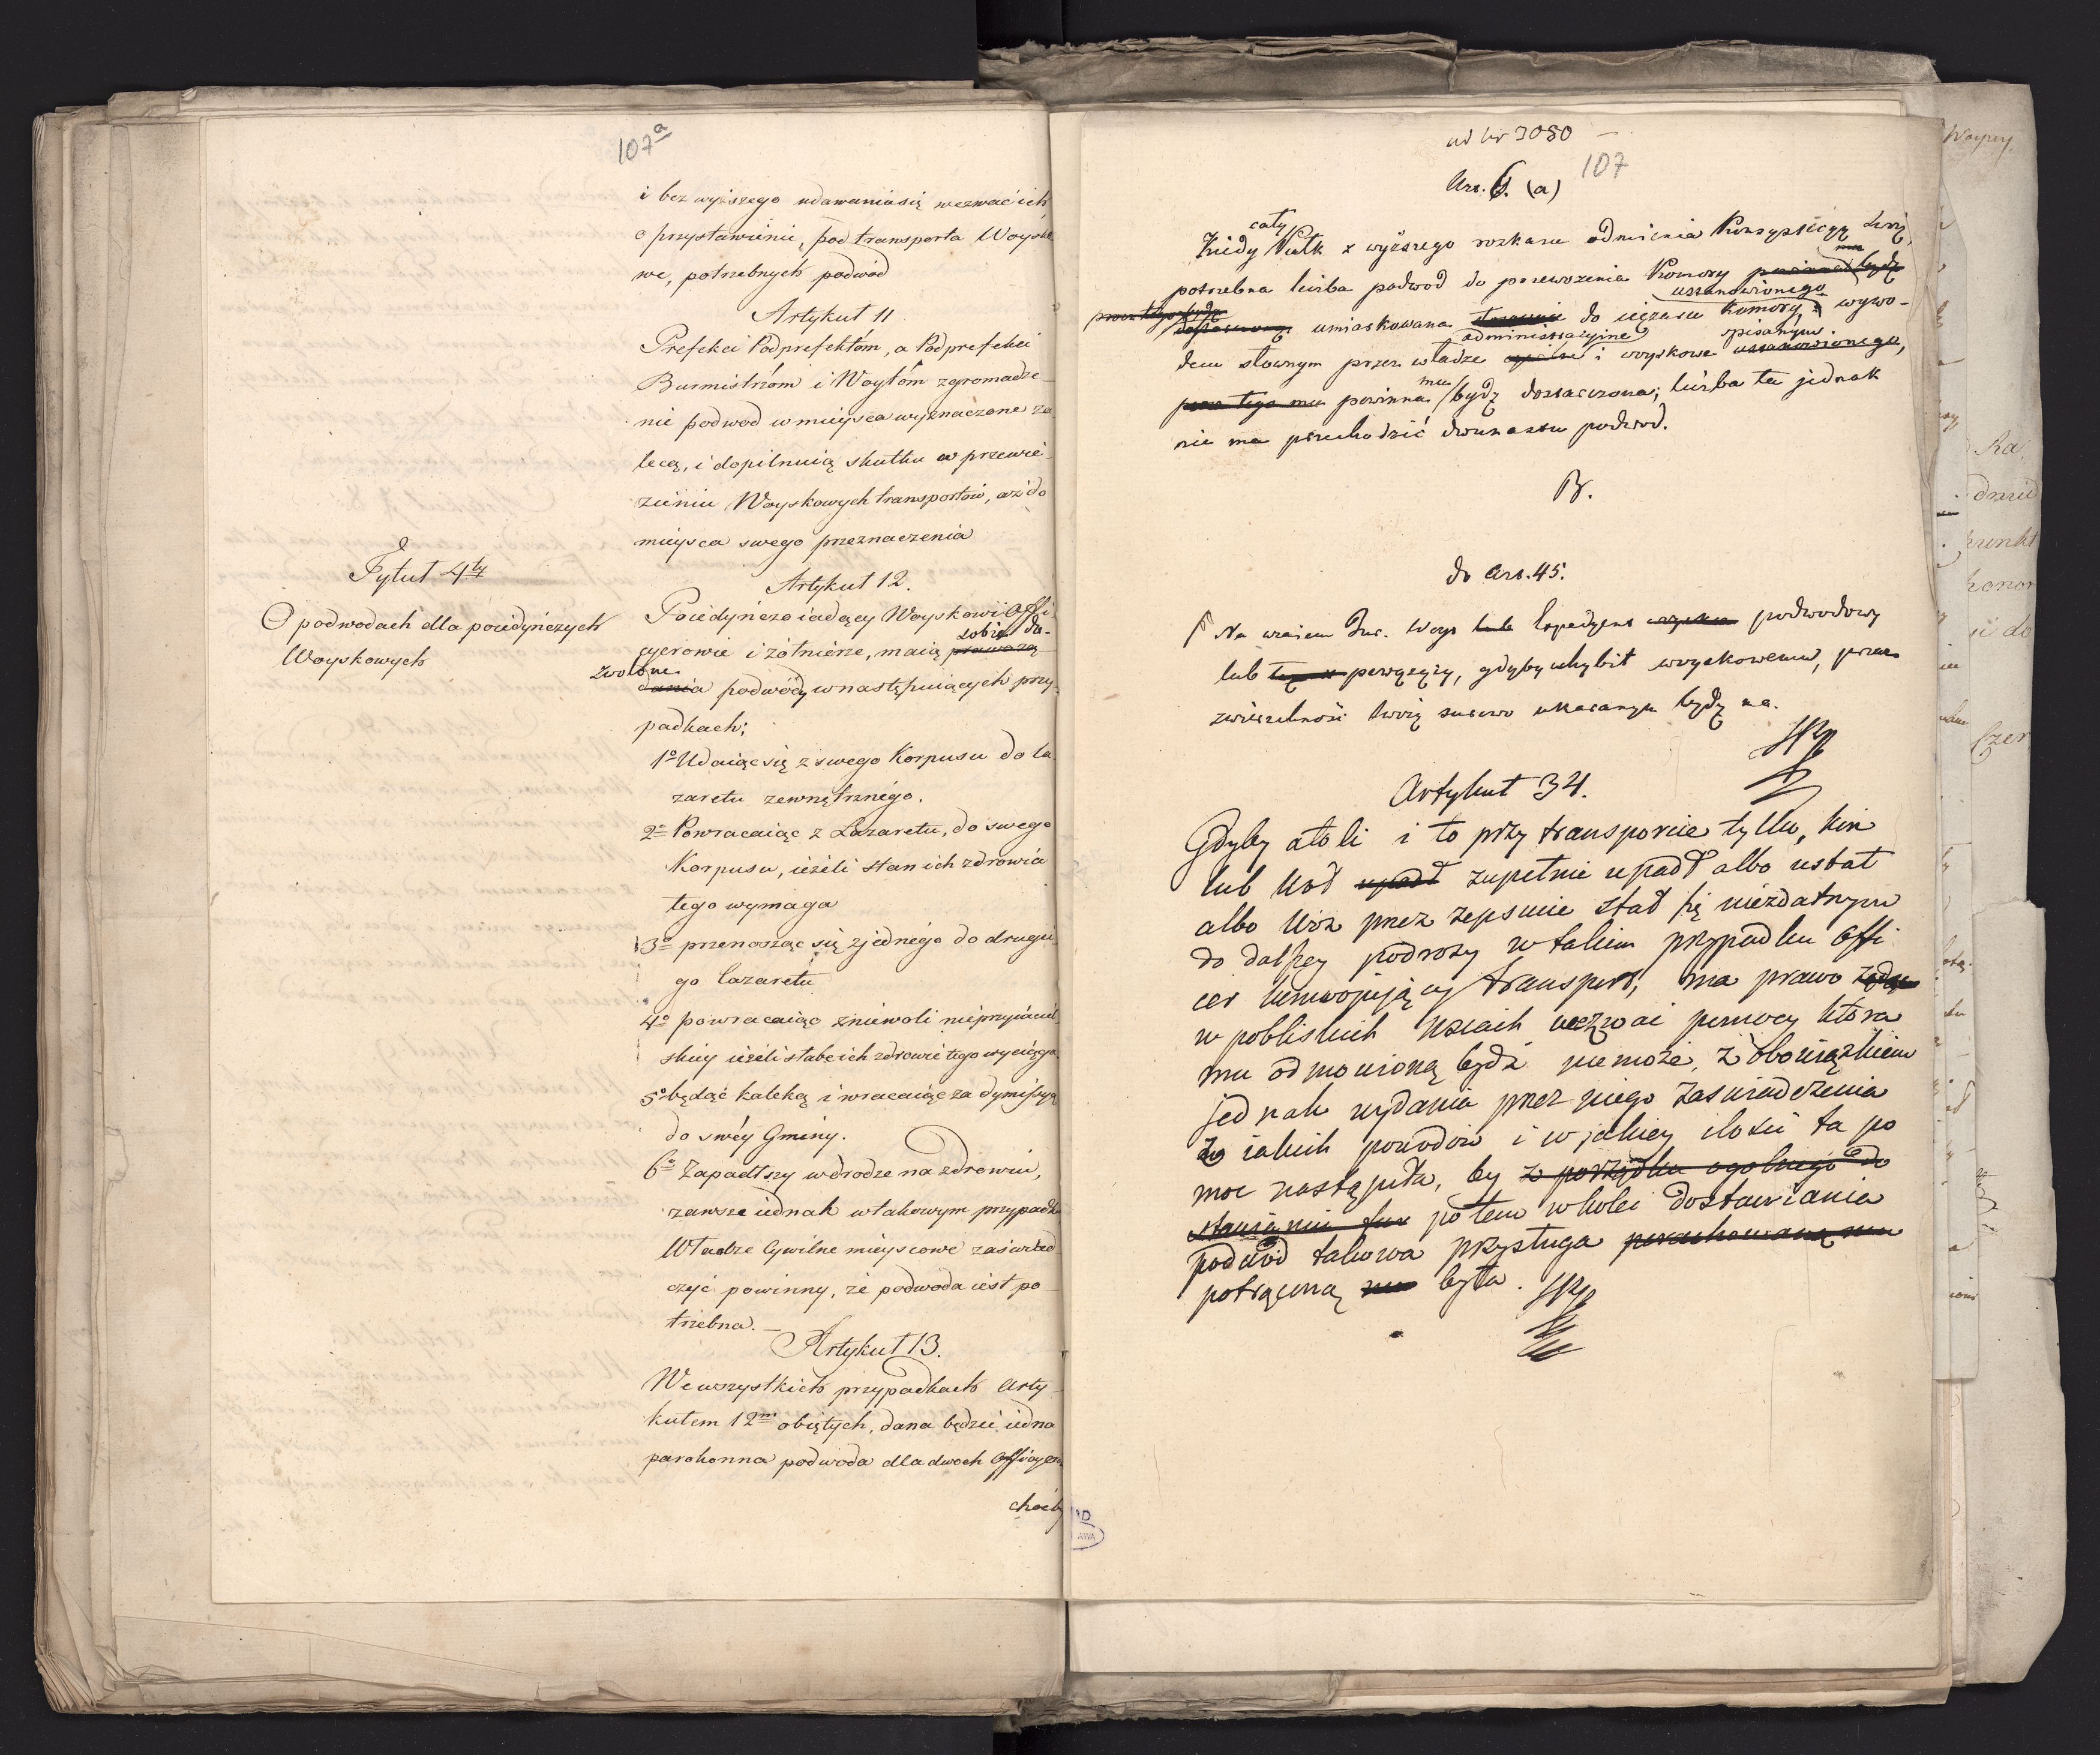 107a
i bez wyższego udawania się wezwać ich
o przystawienie, pod transporta Woysko
we, potrzebnych podwód
Artykuł 11
Prefekci Podprefektóm, a Podprefekci
Burmistrzóm i Woytóm zgromadze
nie podwod w mieysca wyznaczone za
lecą, i dopilnuią skutku w przewie
zieniu Woyskowych transportów, aż do
mieysca swego przeznaczenia
Tytuł 4ty
O podwodach dla poiedyńczych
Woyskowych
Artykuł 12.
Poiedyńczo iadący Woyskowi Offi
sobie do-
cyerowie i żołnierze, maią
zwolone
dania podwódy w następuiących przy
padkach;
1o Udaiąc się z swego Korpusu do la
zaretu zewnętrznego.
2o Powracaiąc z Lazaretu, do swego
Korpusu, ieżeli stan ich zdrowia
tego wymaga
3o przenosząc się z jednego do drugie
go lazaretu
4o powracaiąc z niewoli nieprzyiaciel
skiey ieżeli słabe ich zdrowie tego wyciąga
5o będąc kaleką i wracaiąc za dymissyą
do swéy Gminy.
6o Zapadłszy w drodze na zdrowiu,
zawsze iednak w takowym przypadku
Władze Cywilne mieyscowe zaświad
czyć powinny, że podwoda iest po
trzebna.
Artykuł 13.
We wszystkich przypadkach Arty
kułem 12m obiętych, dana będzie iedna
parokonna podwoda dla dwoch Officyer
choćby
ad Nr 3080
107
Art. 6. (a)
cały
Kiedy Pułk z wyższego rozkazu odmienia Konsystęcyą swoię,
potrzebna liczba podwod do przewożenia Komory
ustanowionego
umiarkowana do ciężaru Komory wywo-
administracyjne spisanym.
dem słownym przez władze i woyskowe ustanowionego,
mu
powinna bydź dostarczona; liczba ta jednak
nie ma przechodzić dwunastu podwod.
B.
do Art. 45.
podwodowy
lub gdyby uchybił woyskowemu, przez
zwierzchność swoię surowo ukaranym bydź ma.
Artykuł 34.
Gdyby atoli i to przy transporcie tylko, koń
lub koń upadł zupełnie upadł albo ustał
albo wóz przez zepsucie stał się niezdatnym
do dalszey podroży w takim przypadku Offi
cer konwojujący transport, ma prawo
w pobliskich wsiach wezwać pomocy która
mu odmowioną bydź niemoże, z obowiązkiem
jednak wydania przez niego zaświadczenia
z iakich powodów i w jakiey ilości ta po
moc nastąpiła, by z porządku ogolnego do
potem w kolei dostawiania
podwód takowa przysługa
potrąconą była.